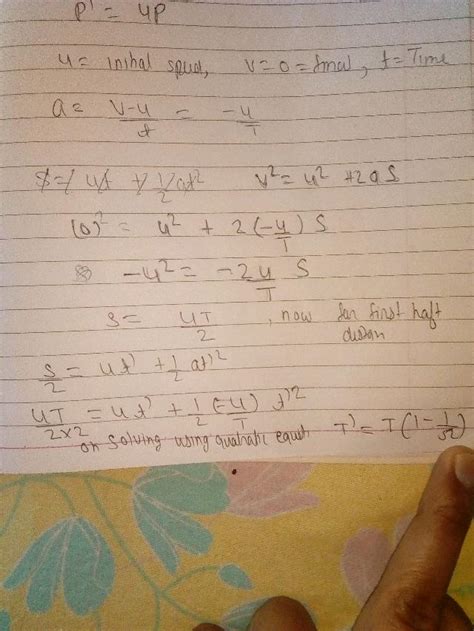 P' = 4P
u = inihal spud, v = 0 = fmal, t = Time
a = v-u/t = -u/T
S = ut + 1/2 at² v² = u² + 2as
(0)² = u² + 2(-u/T) S
-u² = -2u/T S
S = uT/2, now for first haft distan
S/2 = ut' + 1/2 at'²
uT/2×2 = ut' + 1/2 (-u/T) t'²
on solving using quahati equat T' = T(1 - 1/√2)